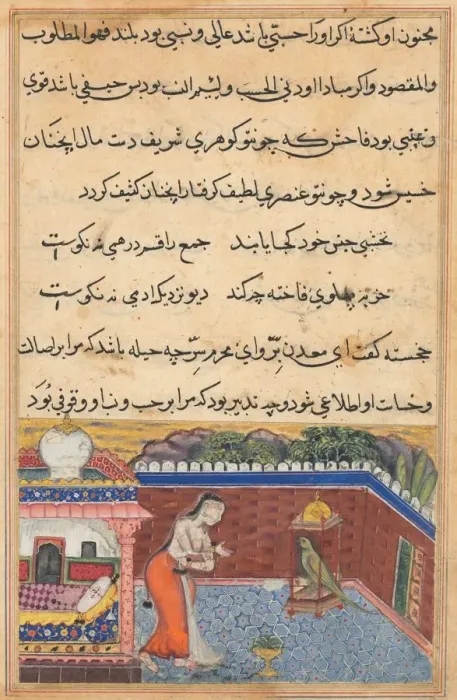 مجنون او کشتهٔ اکر او را حسبی باشد عالی و نسبی بود بلند فهو المطلوب
والمقصود واکر مبادا او دنی الحسب و لئیم النسب بود بس حیفی باشد قوی
و غبنی بود فاحش که چو تو کوهری شریف دست مال اینجنان
خسیس شود و چو تو عنصری لطیف کرفتار اینجنان کثیف کردد
نخشبی جنس خود کجا یابند جمع را قسم درهمی نه نکوست
بهلوی فاخته چه کند دیو نزدیک ادمی نه نکوست
خجسته کفت ای معدن برّ و ای محرم سرّ چه حیله باشد که مرا بر اصالت
و خساست او اطلاعی شود و چه تدبیر بود که مرا بر حسب و نسب او وقوفی بُوَد